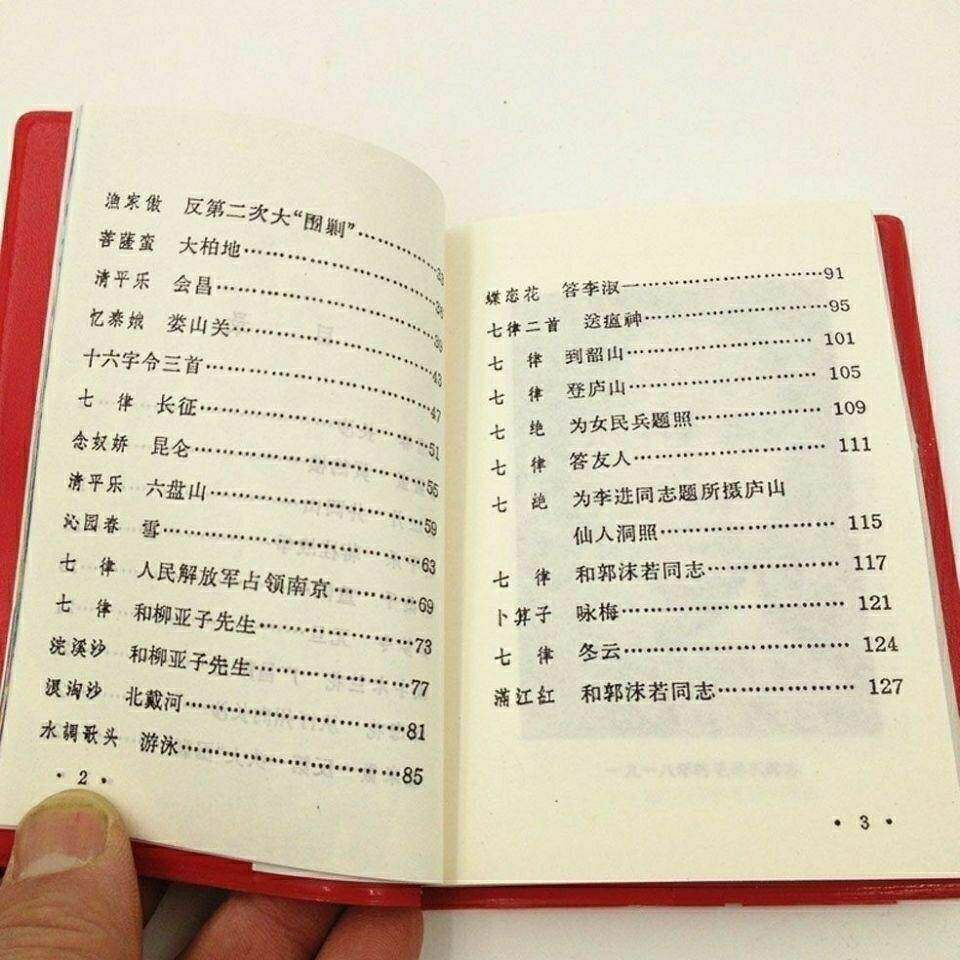 渔家傲 反第二次大“围剿”……………33
菩薩蛮 大柏地……………………
清平乐 会昌……………………
忆秦娥 娄山关……………………
十六字令三首……………………43
七律 长征……………………47
念奴娇 昆仑……………………51
清平乐 六盘山……………………55
沁园春 雪……………………59
七律 人民解放军占领南京…………63
七律 和柳亚子先生………………69
浣溪沙 和柳亚子先生………………73
浪淘沙 北戴河……………………77
水調歌头 游泳……………………81
85
· 2 ·
蝶恋花 答李淑一……………………91
七律二首 送瘟神……………………95
七律 到韶山……………………101
七律 登庐山……………………105
七绝 为女民兵题照………………109
七律 答友人……………………111
七绝 为李进同志题所摄庐山
仙人洞照……………………115
七律 和郭沫若同志………………117
卜算子 咏梅……………………121
七律 冬云……………………124
满江红 和郭沫若同志………………127
· 3 ·